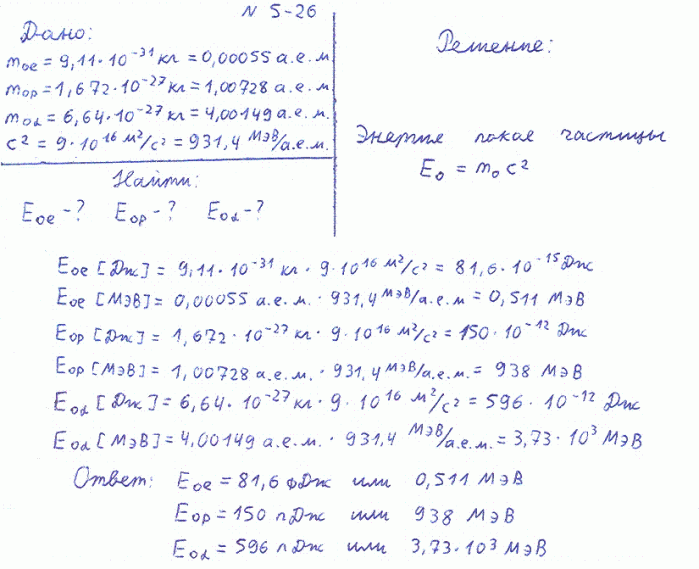 N 5-26
Дано:
m₀e = 9,11·10⁻³¹ кг = 0,00055 а.е.м.
m₀p = 1,672·10⁻²⁷ кг = 1,00728 а.е.м.
m₀α = 6,64·10⁻²⁷ кг = 4,00149 а.е.м.
c² = 9·10¹⁶ м²/с² = 931,4 МэВ/а.е.м.
Найти:
E₀e -? E₀p -? E₀α -?
Решение:
Энергия покоя частицы
E₀ = m₀c²
E₀e [Дж] = 9,11·10⁻³¹ кг · 9·10¹⁶ м²/с² = 81,6·10⁻¹⁵ Дж
E₀e [МэВ] = 0,00055 а.е.м. · 931,4 МэВ/а.е.м = 0,511 МэВ
E₀p [Дж] = 1,672·10⁻²⁷ кг · 9·10¹⁶ м²/с² = 150·10⁻¹² Дж
E₀p [МэВ] = 1,00728 а.е.м. · 931,4 МэВ/а.е.м. = 938 МэВ
E₀α [Дж] = 6,64·10⁻²⁷ кг · 9·10¹⁶ м²/с² = 596·10⁻¹² Дж
E₀α [МэВ] = 4,00149 а.е.м. · 931,4 МэВ/а.е.м. = 3,73·10³ МэВ
Ответ: E₀e = 81,6 фДж или 0,511 МэВ
E₀p = 150 пДж или 938 МэВ
E₀α = 596 пДж или 3,73·10³ МэВ